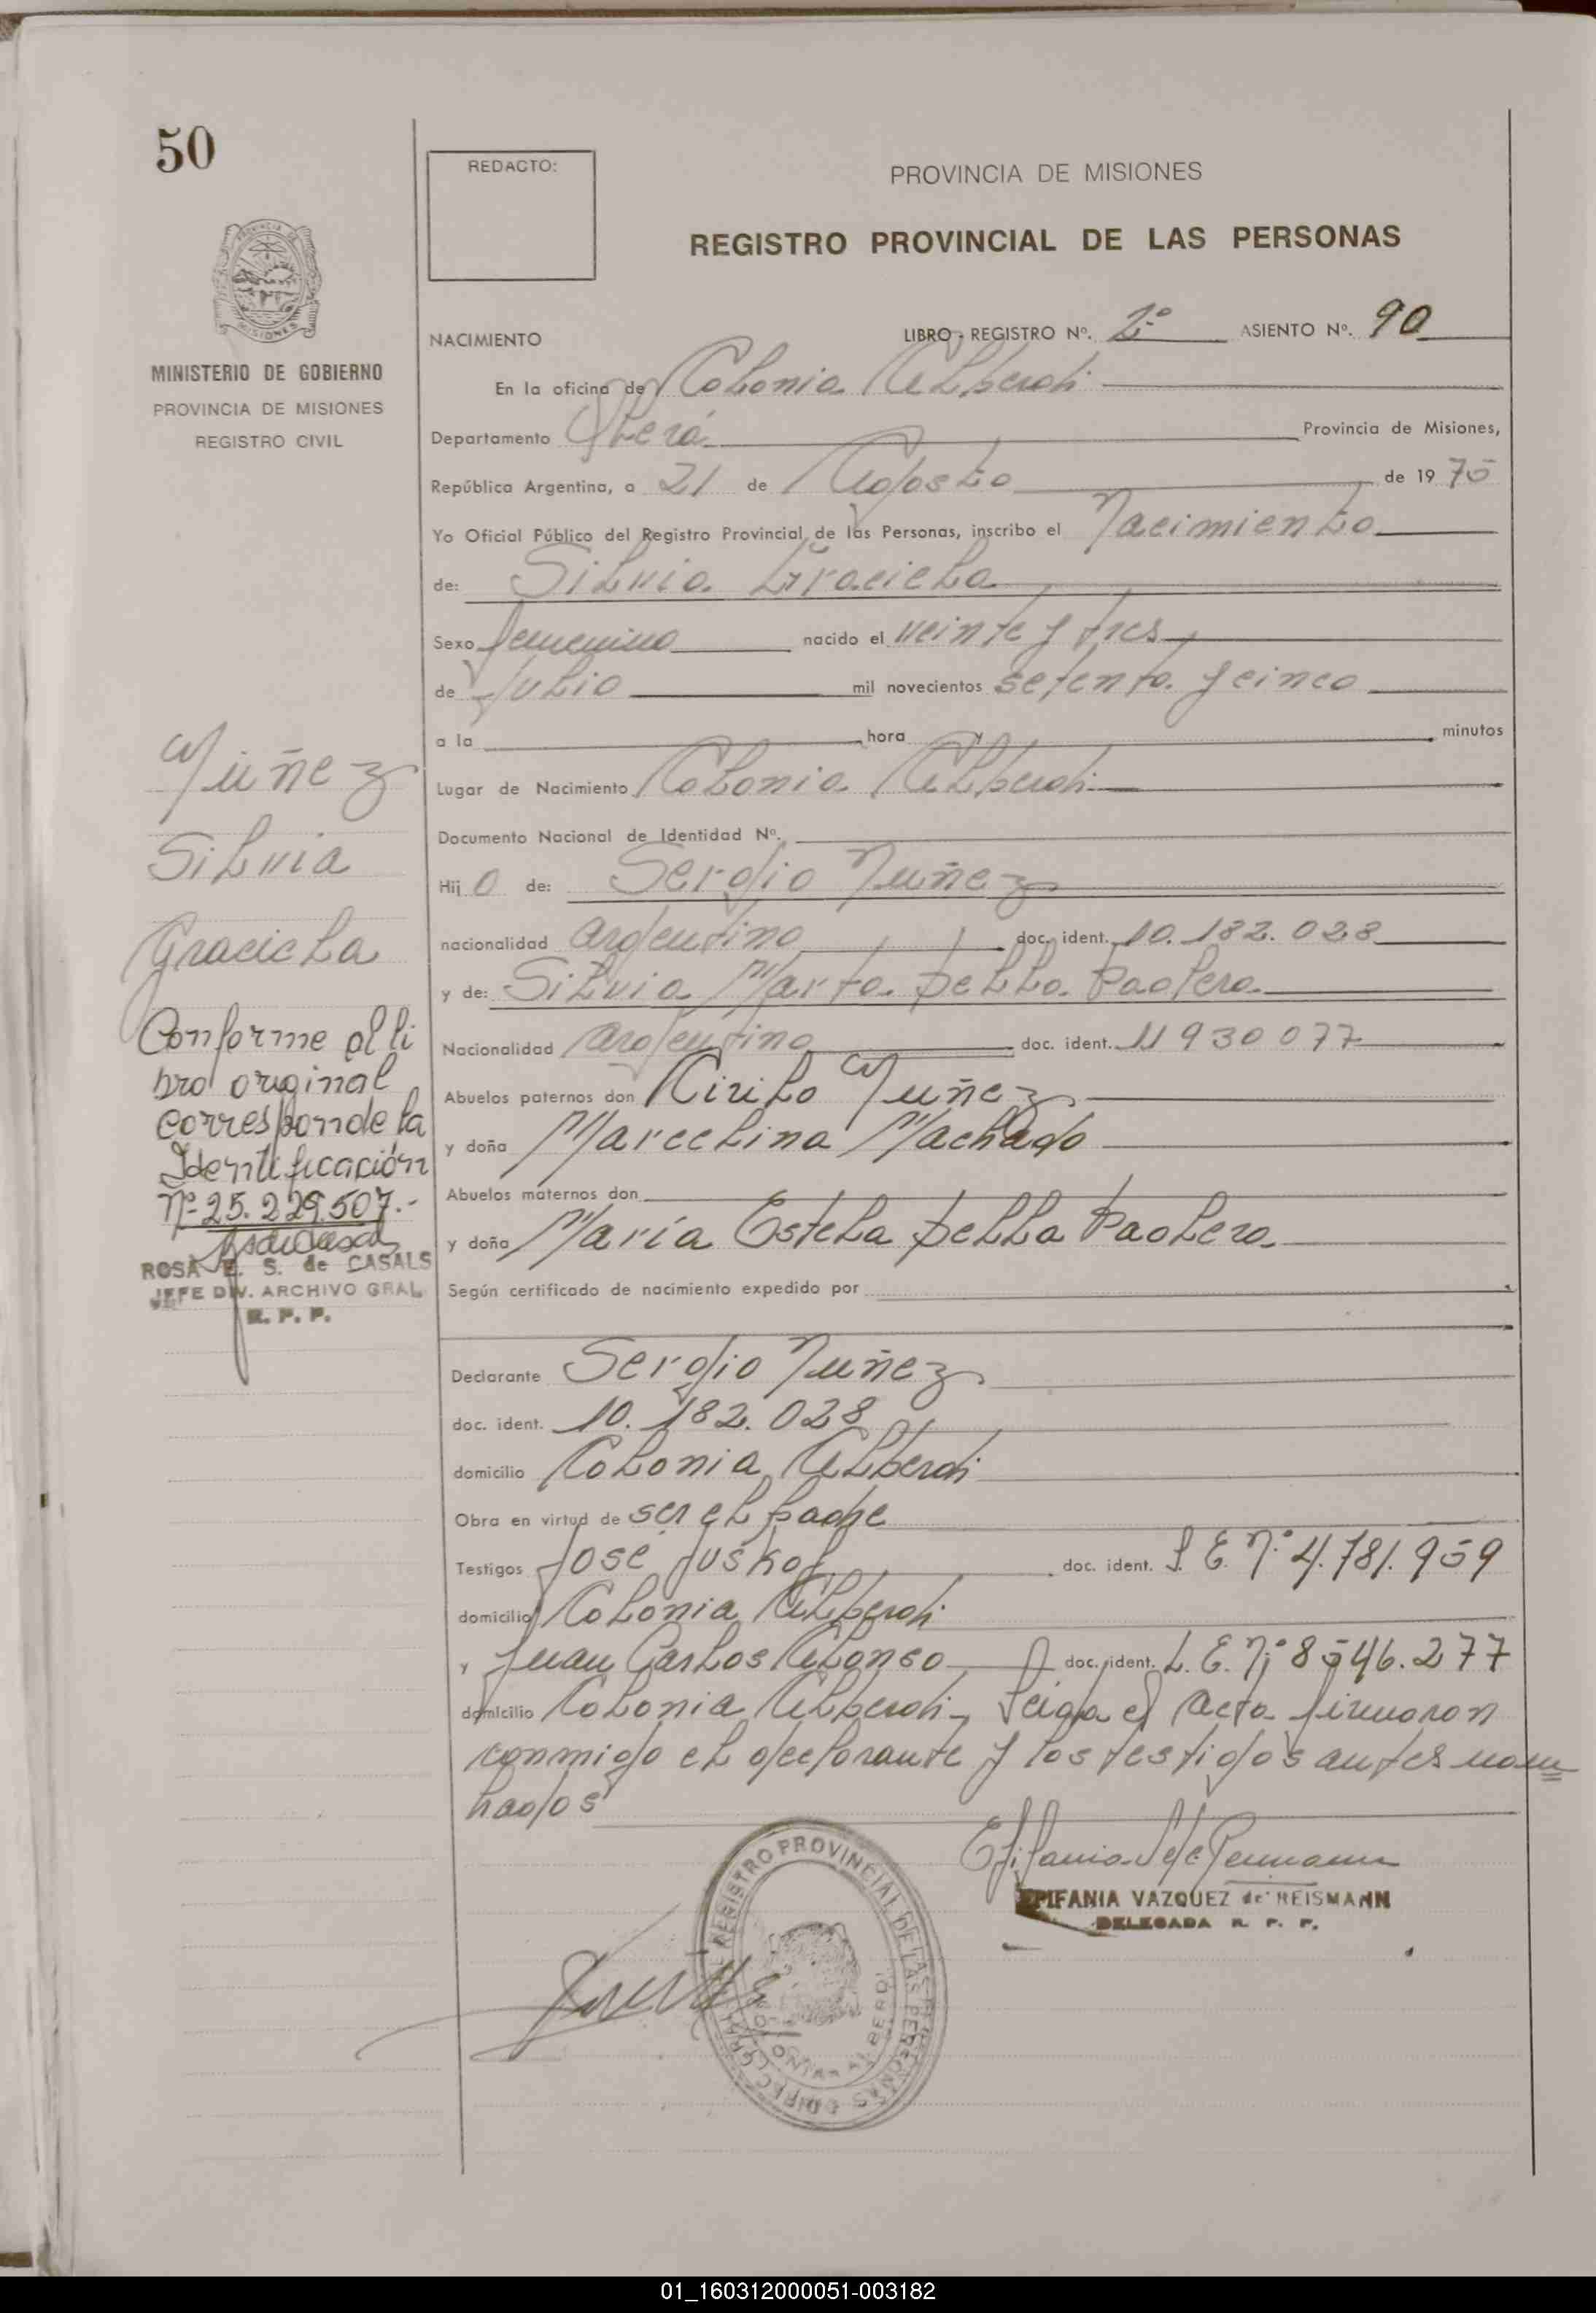 50
REDACTO:
PROVINCIA DE MISIONES
REGISTRO PROVINCIAL DE LAS PERSONAS
MINISTERIO DE GOBIERNO
PROVINCIA DE MISIONES
REGISTRO CIVIL
NACIMIENTO LIBRO - REGISTRO Nº. 2º ASIENTO Nº. 90
En la oficina de Colonia Alberdi
Departamento Oberá Provincia de Misiones,
República Argentina, a 21 de Agosto de 1975
Yo Oficial Público del Registro Provincial de las Personas, inscribo el Nacimiento
de: Silvia Graciela
Sexo femenino nacido el veinte y tres
de Julio mil novecientos setenta y cinco
a la hora y minutos
Lugar de Nacimiento Colonia Alberdi
Documento Nacional de Identidad Nº.
Hijo de: Sergio Nuñez
nacionalidad argentino doc. ident. 10.182.028
y de: Silvia Marta Della Paolera
Nacionalidad argentino doc. ident. 11930077
Abuelos paternos don Kirilo Nuñez
y doña Marcelina Machado
Abuelos maternos don
y doña María Estela Della Paolera
Según certificado de nacimiento expedido por
Nuñez
Silvia
Graciela
Conforme al li
bro original
corresponde la
Identificación
Nº 25.229.507.-
ROSA E. S. de CASALS
JEFE DIV. ARCHIVO GRAL
R. P. P.
Declarante Sergio Nuñez
doc. ident. 10.182.028
domicilio Colonia Alberdi
Obra en virtud de ser el padre
Testigos José doc. ident. L.E.Nº 4.781.959
domicilio Colonia Alberdi
y Juan Carlos Alonso doc. ident. L.E.Nº 8546.277
domicilio Colonia Alberdi- Leida el acta firmaron
conmigo el declarante y los testigos antes nom
brados
EPIFANIA VAZQUEZ de REISMANN
DELEGADA R. P. P.
DIRECC. GRAL. DE REGISTRO PROVINCIAL DE LAS PERSONAS
COLONIA ALBERDI
01_160312000051-003182